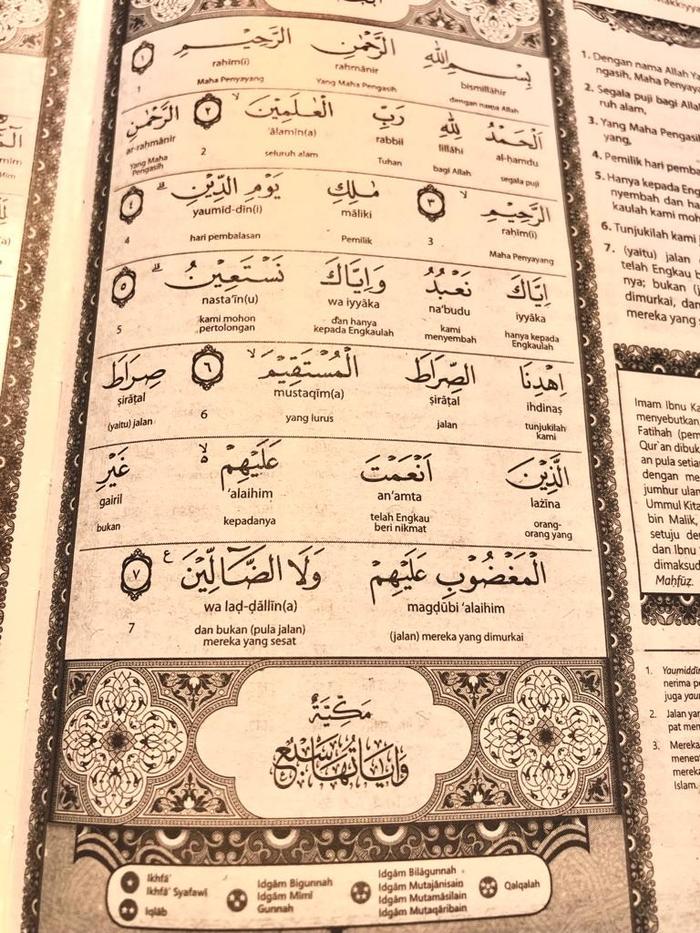 بِسْمِ اللّٰهِ الرَّحْمٰنِ الرَّحِيْمِ ١
bismillāhir raḥmānir rahīm(i)
dengan nama Allah Yang Maha Pengasih Maha Penyayang 1
اَلْحَمْدُ لِلّٰهِ رَبِّ الْعٰلَمِيْنَۙ ٢ الرَّحْمٰنِ
al-hamdu lillāhi rabbil ‘ālamīn(a) ar-raḥmānir
segala puji bagi Allah Tuhan seluruh alam 2 Yang Maha Pengasih
الرَّحِيْمِۙ ٣ مٰلِكِ يَوْمِ الدِّيْنِۗ ٤
rahīm(i) māliki yaumid-dīn(i)
Maha Penyayang 3 Pemilik hari pembalasan 4
اِيَّاكَ نَعْبُدُ وَاِيَّاكَ نَسْتَعِيْنُۗ ٥
iyyāka na‘budu wa iyyāka nasta‘īn(u)
hanya kepada Engkaulah kami menyembah dan hanya kepada Engkaulah kami mohon pertolongan 5
اِهْدِنَا الصِّرَاطَ الْمُسْتَقِيْمَۙ ٦ صِرَاطَ
ihdinaṣ ṣirāṭal mustaqīm(a) ṣirāṭal
tunjukilah kami jalan yang lurus 6 (yaitu) jalan
الَّذِيْنَ اَنْعَمْتَ عَلَيْهِمْ ەۙ غَيْرِ
lażīna an‘amta ‘alaihim gairil
orang-orang yang telah Engkau beri nikmat kepadanya bukan
الْمَغْضُوْبِ عَلَيْهِمْ وَلَا الضَّاۤلِّيْنَ ࣖ ٧
magḍūbi ‘alaihim wa laḍ-ḍāllīn(a)
(jalan) mereka yang dimurkai dan bukan (pula jalan) mereka yang sesat 7
مَكِّيَّةٌ
وَاٰيَاتُهَا سَبْعٌ
Ikhfā’
Ikhfā’ Syafawī
Iqlāb
Idgām Bigunnah
Idgām Mīmī
Gunnah
Idgām Bilāgunnah
Idgām Mutajānisain
Idgām Mutamāsilain
Idgām Mutaqāribain
Qalqalah
1. Dengan nama Allah
ngasih, Maha Penyaya
2. Segala puji bagi Allah
ruh alam,
3. Yang Maha Pengasih
yang,
4. Pemilik hari pemba
5. Hanya kepada Eng
nyembah dan ha
kaulah kami moh
6. Tunjukilah kami
7. (yaitu) jalan
telah Engkau b
nya; bukan (j
dimurkai, dan
mereka yang
Imam Ibnu Ka
menyebutkan,
Fatihah (pem
Qur’an dibuk
an pula setia
dengan me
jumhur ulan
Ummul Kita
bin Malik,
setuju de
dan Ibnu
dimaksud
Maḥfūẓ.
1. Yaumiddī
nerima pe
juga yau
2. Jalan yan
pat mem
3. Mereka
menen
mereka
Islam.